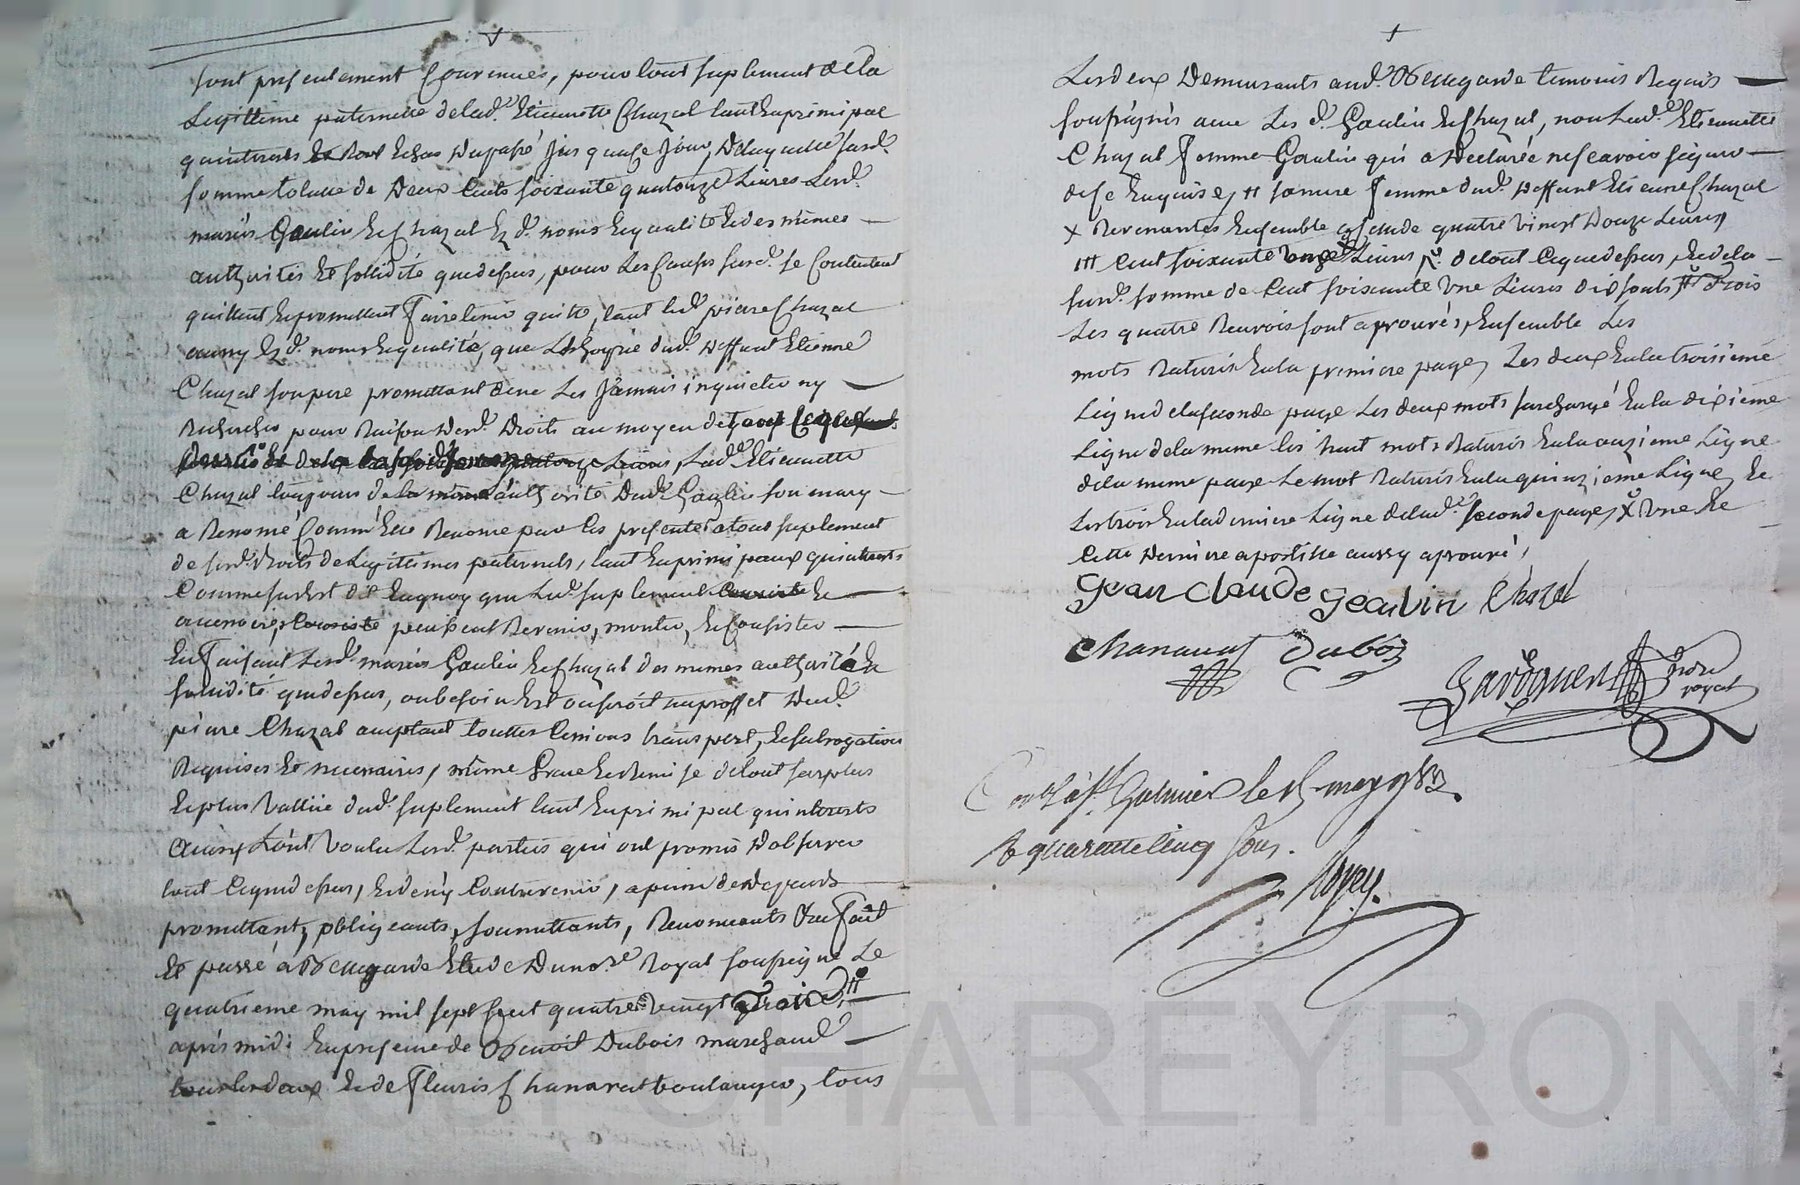 sont presentement Convenues, pour tout suplement de la
Legittime paternelle de lad.e Etiennette Chazal tant en principal
qu'interets Et tout Echus du passé jusqua ce jour, De laquelle susd.e
somme totalle de Deux Cents soixante quatorze Livres Lesd.
mariés Gaulin Et Chazal Ez d. noms Et qualité Et des mêmes
authorités Et sollidité que dessus, pour Les Causes susd. se Contentent
quittent Et promettent faire tenir quitte, tant led. pierre Chazal
aussy Ez d. noms Et qualité, que L'hoyrie dud. deffunt Etienne
Chazal son pere promettant de ne Les Jamais inquietter ny
Rechercher pour Raison desd. Droits au moyen de
Livres, Lad.e Etiennette
Chazal toujours de la même authorité Dud. Gaulin son mary
a Renoncé Comm'Elle Renonce par Ces presentes a tout suplement
de sesd. droits de Legittimes paternels, tant En principaux qu'interets
Comme susd. Est dit En quoy que Led. suplement Et
accenoires Consiste peussent Revenir, monter, Et Consister
En faisant Lesd. mariés Gaulin Et Chazal des mêmes authorité Et
sollidité que dessus, ou besoin Est ou seroit au proffet Dud.
pierre Chazal acceptant touttes Cessions transport, Et subrogations
Requises Et necessaires, même Grace Et Remise de tout surplus
Et plus Vallüe dud. suplement tant En principal qu'interets
Ainsy L'ont Voulu Lesd. parties qui ont promis D'observer
tout Ce que dessus, Et de n'y Contrevenir, a peine de
promettant, obligeants, soumettants, Renonceants Fait
Et passé a Bellegarde Etude Du no.re Royal soussigné Le
quatrieme may mil sept Cent quatre vingt Trois
après midi En presence de Benoit Dubois marchand
Et de Fleuris Chanavat boulanger, tous
Les deux Demeurants aud. Bellegarde temoins Requis
soussignés avec Les d. Gaulin Et Chazal, non Lad.e Etiennette
Chazal femme Gaulin qui a Declarée ne scavoir signer
de Ce Enquise femme dud. deffunt Etienne Chazal
X Revenantes Ensemble a Celle de quatre vingt Douze Livres
Cent soixante onze Livres de tout Ce que dessus, Et de la
susd. somme de Cent soixante Une Livres dix souls Trois
Les quatre Renvois sont aprouvés, Ensemble Les
mots Raturés En la premiere page, Les deux En la troisieme
Ligne de la seconde page Les deux mots surchargé En la dixieme
Ligne de la même Les huit mots Raturés En la onzieme Ligne
de la même page Le mot Raturé En la quinzieme Ligne, Et
Les trois En la derniere Ligne de lad.e seconde page, X Une Et
Cette Derniere apostille aussy aprouvé,
Jean Claude geaulin Chazal
Chanavat Dubois
Gardonnet nore royal
Con.lé à S.t Galmier le 15 may 1783.
R quarante Cinq sous.
Royez.
GUY CHAREYRON